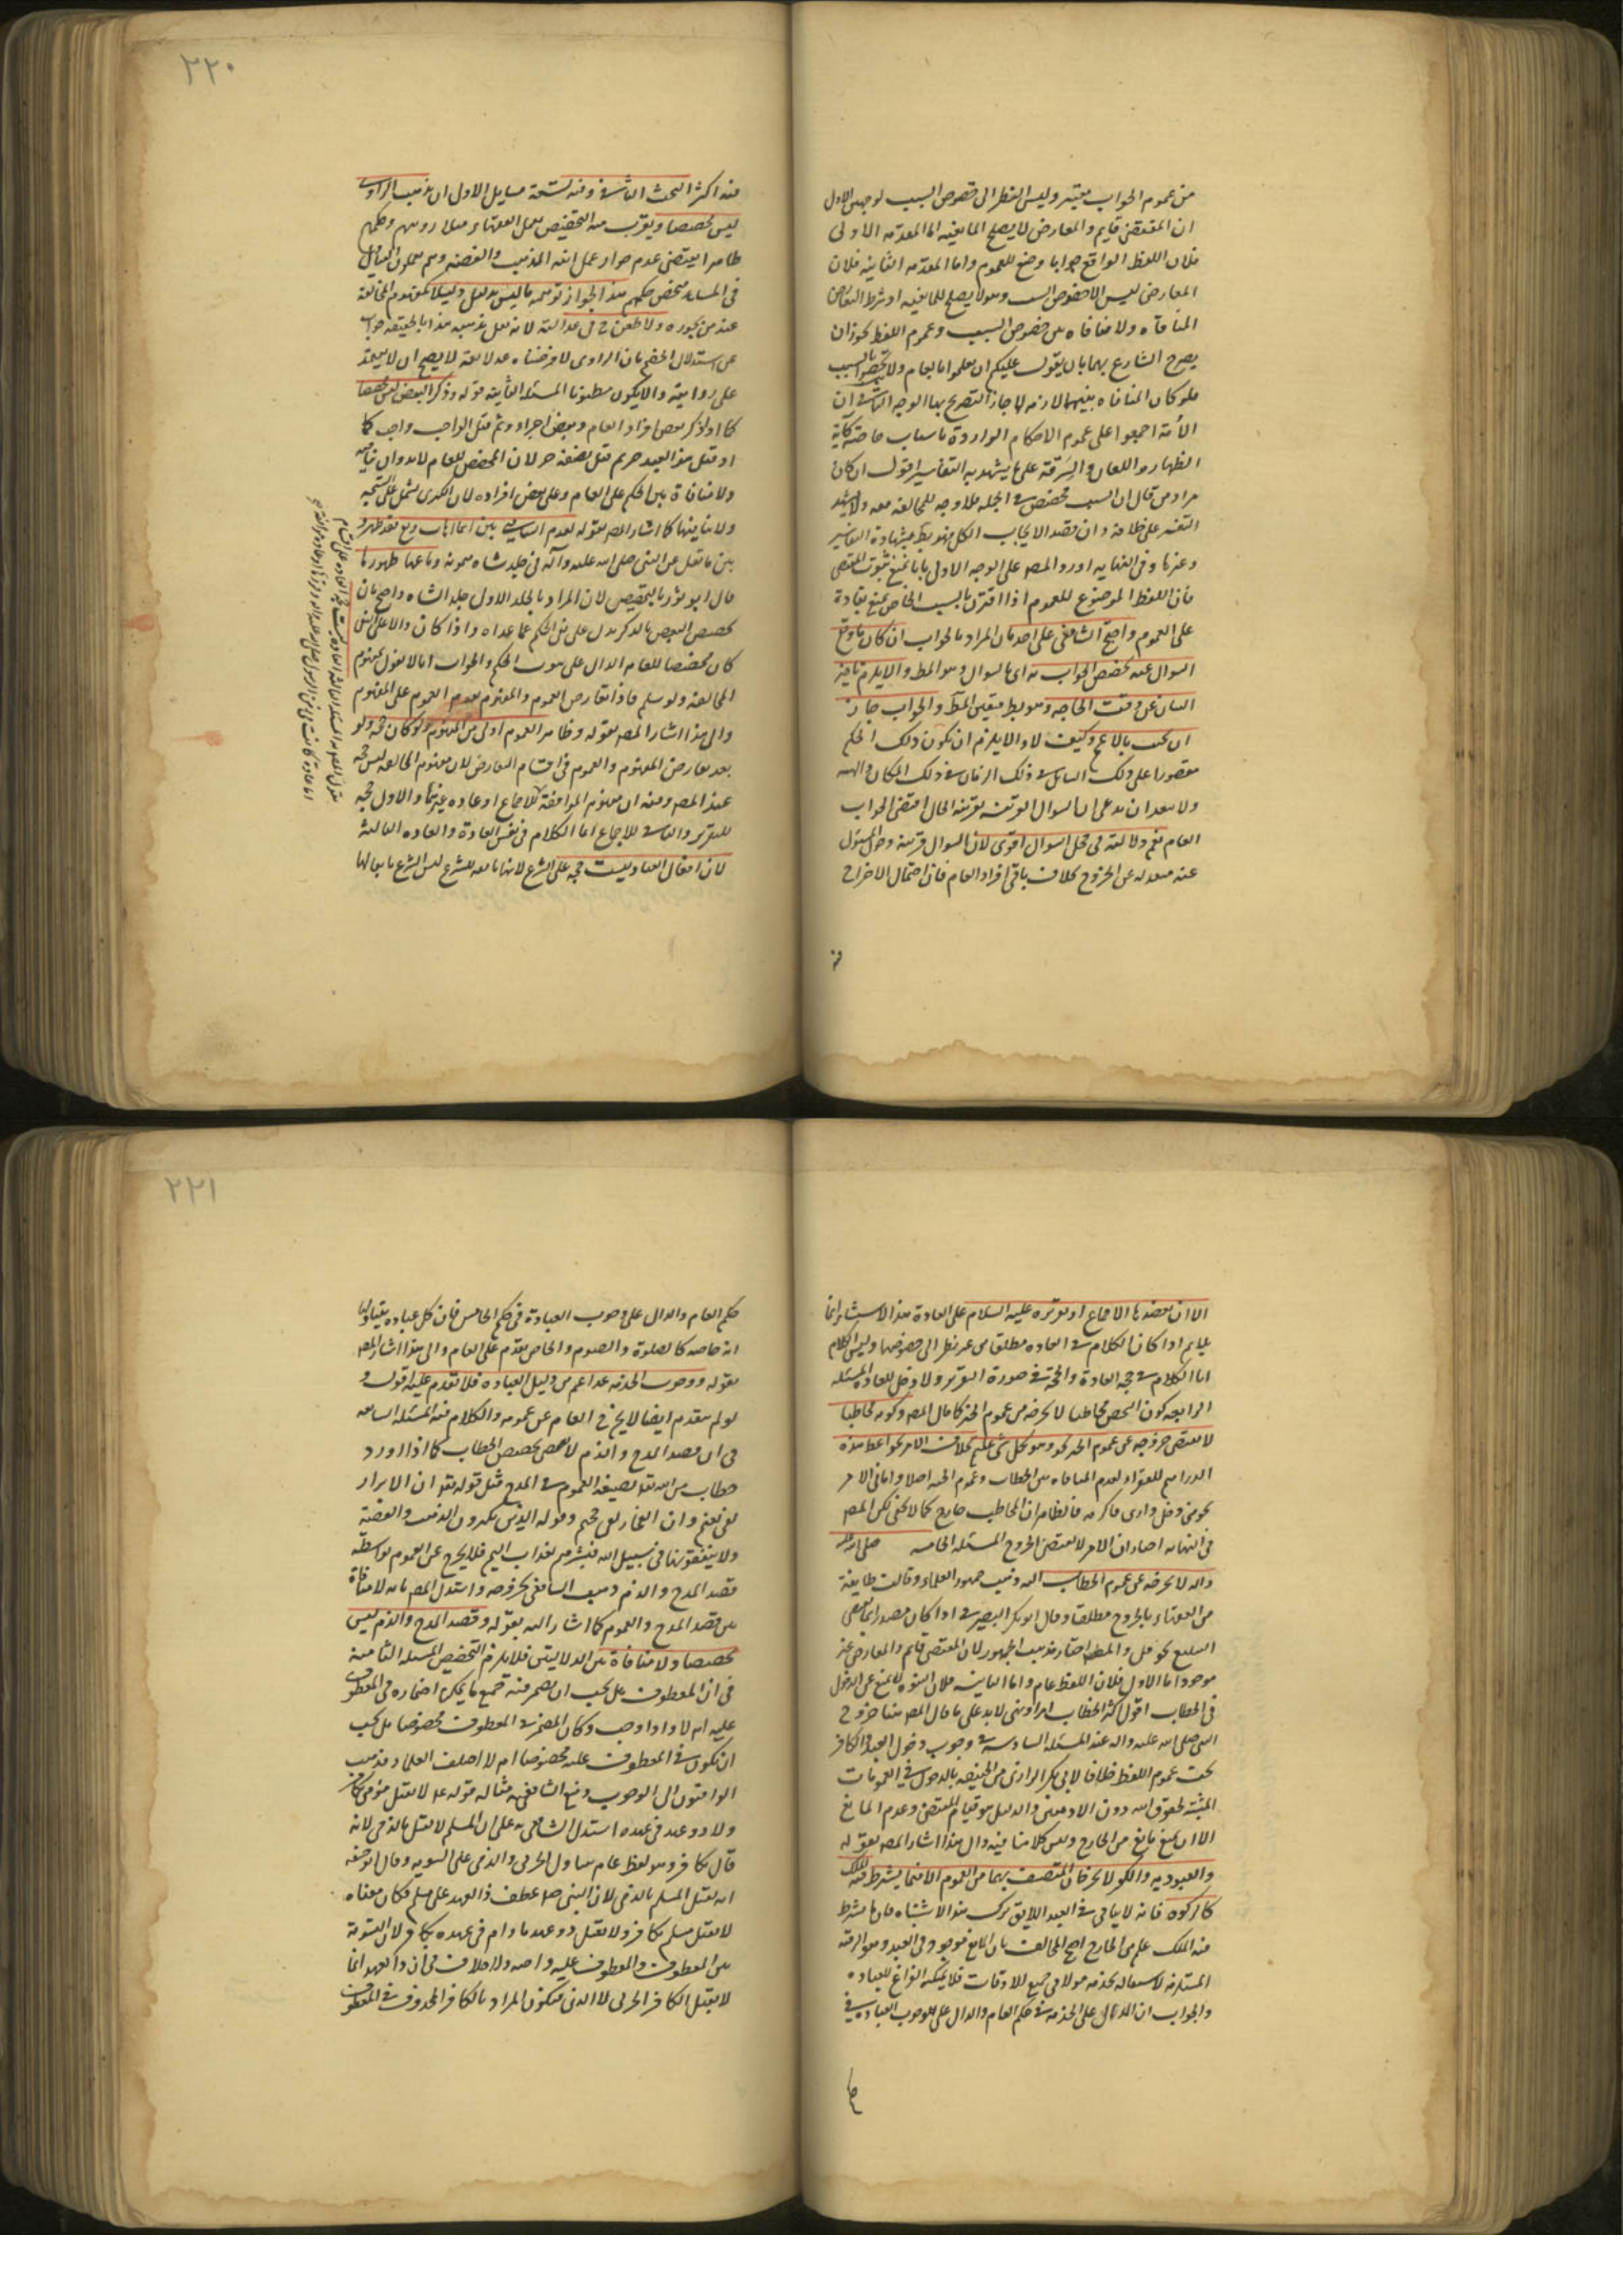 من عموم الجواب معتبر وليس النظر الى خصوص السبب لوجهين الاول
ان المقتضى قايم والمعارض لا يصلح للمانعية اما المقدمه الاولى
فلان اللفظ الواقع جوابا وضع للعموم واما المقدمه الثانيه فلان
المعارض ليس الا خصوص السبب وهو لا يصلح للمانعيه اذ شرط التعارض
المنافاه ولا منافاه بين خصوص السبب وعموم اللفظ لجواز ان
يصرح الشارع بهما بان يقول عليكم ان تعملوا بالعام ولا بالسبب
فلو كان المنافاه بينهما لازمه لما جاز التصريح بها الوجه الثانى ان
الأمة اجمعوا على عموم الاحكام الواردة باسباب خاصة كآية
الظهار واللعان والسرقة على ما يشهد به التفاسير اقول ان كان
مراد من قال ان السبب مخصص فى الجمله فلا وجه للمخالفه معه ولا
على خلافه وان قصد الايجاب الكلى فهو بط بشهادة التفاسير
وغيرها وفى النهايه اورد المصـ على الوجه الاول بانا نمنع ثبوت المقتضى
فان اللفظ الموضوع للعموم اذا اقترن بالسبب الخاص نمنع
على العموم واحتج الشافعى على بان المراد بالجواب ان كان ما وقع
السوال عنه تخصص الجواب به اى بالسوال وهو المط والا يلزم تاخير
البيان عن وقت الحاجه وهو بط فتعين المط والجواب جاز
ان يجب بالاعم وكيف لا والا يلزم ان يكون ذلك الحكم
مقصورا على ذلك السايل فى ذلك الزمان فى ذلك المكان
ولا يبعد ان يدعى ان السوال بقرينه الحال اقتضى الجواب
العام نعم دلالته فى محل السوال اقوى لان السوال قرينة
عنه عن الخروج بخلاف باقى افراد العام فان احتمال الاخراج
فيه
٢٢٠
فيه اكثر البحث الثانى وفيه تسعة مسايل الاول ان مذهب الراوى
ليس مخصصا ويقرب منه التخصيص بعمل الفقهاء
ظاهرا يقتضى عدم جواز عمل الذهب والفضة وهم
فى المساجد عند الجواز توهمه ما ليس بدليل دليلا كمفهوم المخالفة
عند من يجوزه ولا طعن ح فى عدالته لانه لم يعمل بمذهبه هذا بالحقيقه جواب
عن استدلال الخصم بان الراوى لا فرضناه عدلا ثقة لا يصح ان لا يعتمد
على روايته والا يكون مطعونا المسئله الثانيه قوله وذكر البعض ليس مخصصا
كما اذا ذكر بعض افراد العام
او قتل هذا العبد حرم لان المخصص للعام لابد وان
ولا منافاة بين الحكم على العام وعلى بعض افراده لان الكلى يشتمل على
ولا ينافيها كما اشار المصـ بقوله لعدم التنافى بين ايما اهاب دبغ فقد طهر و
بين ما نقل عن النبى صلى الله عليه وآله فى جلد شاه ميمونه دباغها طهورها
قال ابو ثور بالتخصيص لان المراد بالجلد الاول جلد الشاه واحتج بان
تخصيص البعض بالذكر يدل على نفى الحكم عما عداه واذا كان
كان مخصصا للعام الدال على ثبوت الحكم والجواب انا لا نقول بمفهوم
المخالفه ولو سلم فاذا تعارض العموم والمفهوم يقدم العموم على المفهوم
والى هذا اشار المصـ بقوله وظاهر العموم اولى من المفهوم لو كان حجه ولو
بعد تعارض المفهوم والعموم فى اقسام التعارض لان مفهوم المخالفه ليس حجه
عند المصـ ومنه ان مفهوم الموافقة كلا جماع او عاده غيرهما والاول حجه
للتقرير والثانى للاجماع اما الكلام فى نفس العادة والعاده الثالثه
لان افعال العباد ليست حجه على الشرع لانها تابعه للشرع ليس الشرع تابعا لها
الا ان يعضدها الاجماع او تقريره عليه السلام على العادة هذا الاستثناء انما
يلايم اذا كان الكلام فى العاده مطلقا من غير نظر الى خصوصها وليس الكلام
اما الكلام فى حجه العادة والحجة فى صورة التقرير ولا دخل للعاده المسئله
الرابعه كون الشخص مخاطبا لا يخرجه من عموم الخبر كما قال المصـ وكونه مخاطبا
لا يقتضى خروجه عن عموم الخبر نحو وهو بكل شى عليم بخلاف الامر نحو اعط هذه
الدراهم للفقراء لعدم المنافاه بين الخطاب وعموم الخبر اصلا واما فى الامر
نحو من دخل دارى فاكرمه فالظاهر ان المخاطب خارج كما لا يخفى لكن المصـ
فى النهايه اختار ان الامر لا يقتضى الخروج المسئله الخامسه صلى الله عليه
واله لا يخرجه عن عموم الخطاب اليه ذهب جمهور العلماء وقالت طايفة
من الفقهاء بالخروج مطلقا وقال ابو بكر الصيرفى اذا كان مصدرا
نحو قل والمصـ اختار مذهب الجمهور لان المقتضى قايم والمعارض غير
موجود اما الاول فلان اللفظ عام واما الثانيه فلان النبوه لا تمنع عن الدخول
فى الخطاب اقول الخطاب امر او نهى لابد على ما قال المصـ خروج
النبى صلى الله عليه واله عنه المسئله السادسه فى وجوب دخول العبد والكافر
تحت عموم اللفظ خلافا لابى بكر الرازى من الحنفيه بالدخول فى العمومات
المثبته لحقوق الله دون الادميين والدليل هو قيام المقتضى وعدم المانع
الا ان يمنع مانع من الخارج وليس كلامنا فيه والى هذا اشار المصـ بقوله
والعبوديه والكفر لا يخرجان المتصف بهما من العموم الا فيما يشترط فيه الملك
كالزكوه فانه لا ياتى فى العبد اللايق ترك هذا الاستثناء فان ما يشترط
فيه الملك علم من الخارج احتج المخالف بان المانع موجود فى العبد وهو الرقيه
المستلزمه لاستعماله بخدمه مولاه فى جميع الاوقات فلا يمكنه الفراغ للعباده
والجواب ان الدال على الخدمه فى حكم العام والدال على وجوب العباده فى
٢٢١
حكم العام والدال على وجوب العبادة فى حكم الخاص فان كل عباده يتناولها
انه خاصه كالصلوة والصوم والخاص مقدم على العام والى هذا اشار المصـ
بقوله ووجوب الخدمه عد اعم من دليل العباده فلا تقدم عليه اقول و
لو لم يتقدم ايضا لا يخرج العام عن عمومه والكلام فيه المسئله السابعه
فى ان قصد المدح والذم لا يقتضى تخصيص الخطاب كما اذا ورد
خطاب من الله تعـ بصيغه العموم فى المدح مثل قوله تعـ ان الابرار
لفى نعيم وان الفجار لفى جحيم وقوله الذين يكنزون الذهب والفضة
ولا ينفقونها فى سبيل الله فبشرهم بعذاب اليم فلا يخرج عن العموم بواسطه
قصد المدح والذم ذهب الشافعى بخروجه واستدل المصـ بانه لا منافاة
بين قصد المدح والعموم كما اشار اليه بقوله وقصد المدح والذم ليس
مخصصا ولا منافاة بين الدلاليتين فلا يلزم التخصيص المسئله الثامنة
فى ان المعطوف هل يجب ان يضمر فيه جميع ما يمكن اضماره فى المعطوف
عليه ام لا واذا وجب وكان المضمر فى المعطوف مخصوصا هل يجب
ان يكون فى المعطوف عليه مخصوصا ام لا اختلف العلماء فذهب
الى الوجوب ومنع الشافعيه مثاله قوله عـ لا يقتل مؤمن بكافر
ولا ذو عهد فى عهده استدل الشافعيه على ان المسلم لا يقتل بالذمى لانه
قال بكافر وهو لفظ عام متناول للحربى والذمى على السويه وقال ابو حنيفه
انه يقتل المسلم بالذمى لان النبى صـ عطف ذا العهد على مسلم فكان معناه
لا يقتل مسلم بكافر ولا يقتل ذو عهد ما دام فى عهده بكافر لان التسوية
بين المعطوف والمعطوف عليه واجبه ولا خلاف فى ان ذا العهد انما
لا يقتل بالكافر الحربى لا الذمى فيكون المراد بالكافر المحذوف فى المعطوف